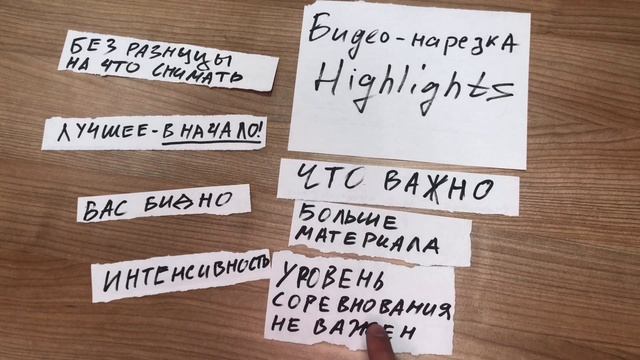 Видео-нарезка
Highlights
БЕЗ РАЗНИЦЫ
НА ЧТО СНИМАТЬ
ЛУЧШЕЕ-В НАЧАЛО!
ВАС ВИДНО
ИНТЕНСИВНОСТЬ
ЧТО ВАЖНО
БОЛЬШЕ
МАТЕРИАЛА
УРОВЕНЬ
СОРЕВНОВАНИЯ
НЕ ВАЖЕН